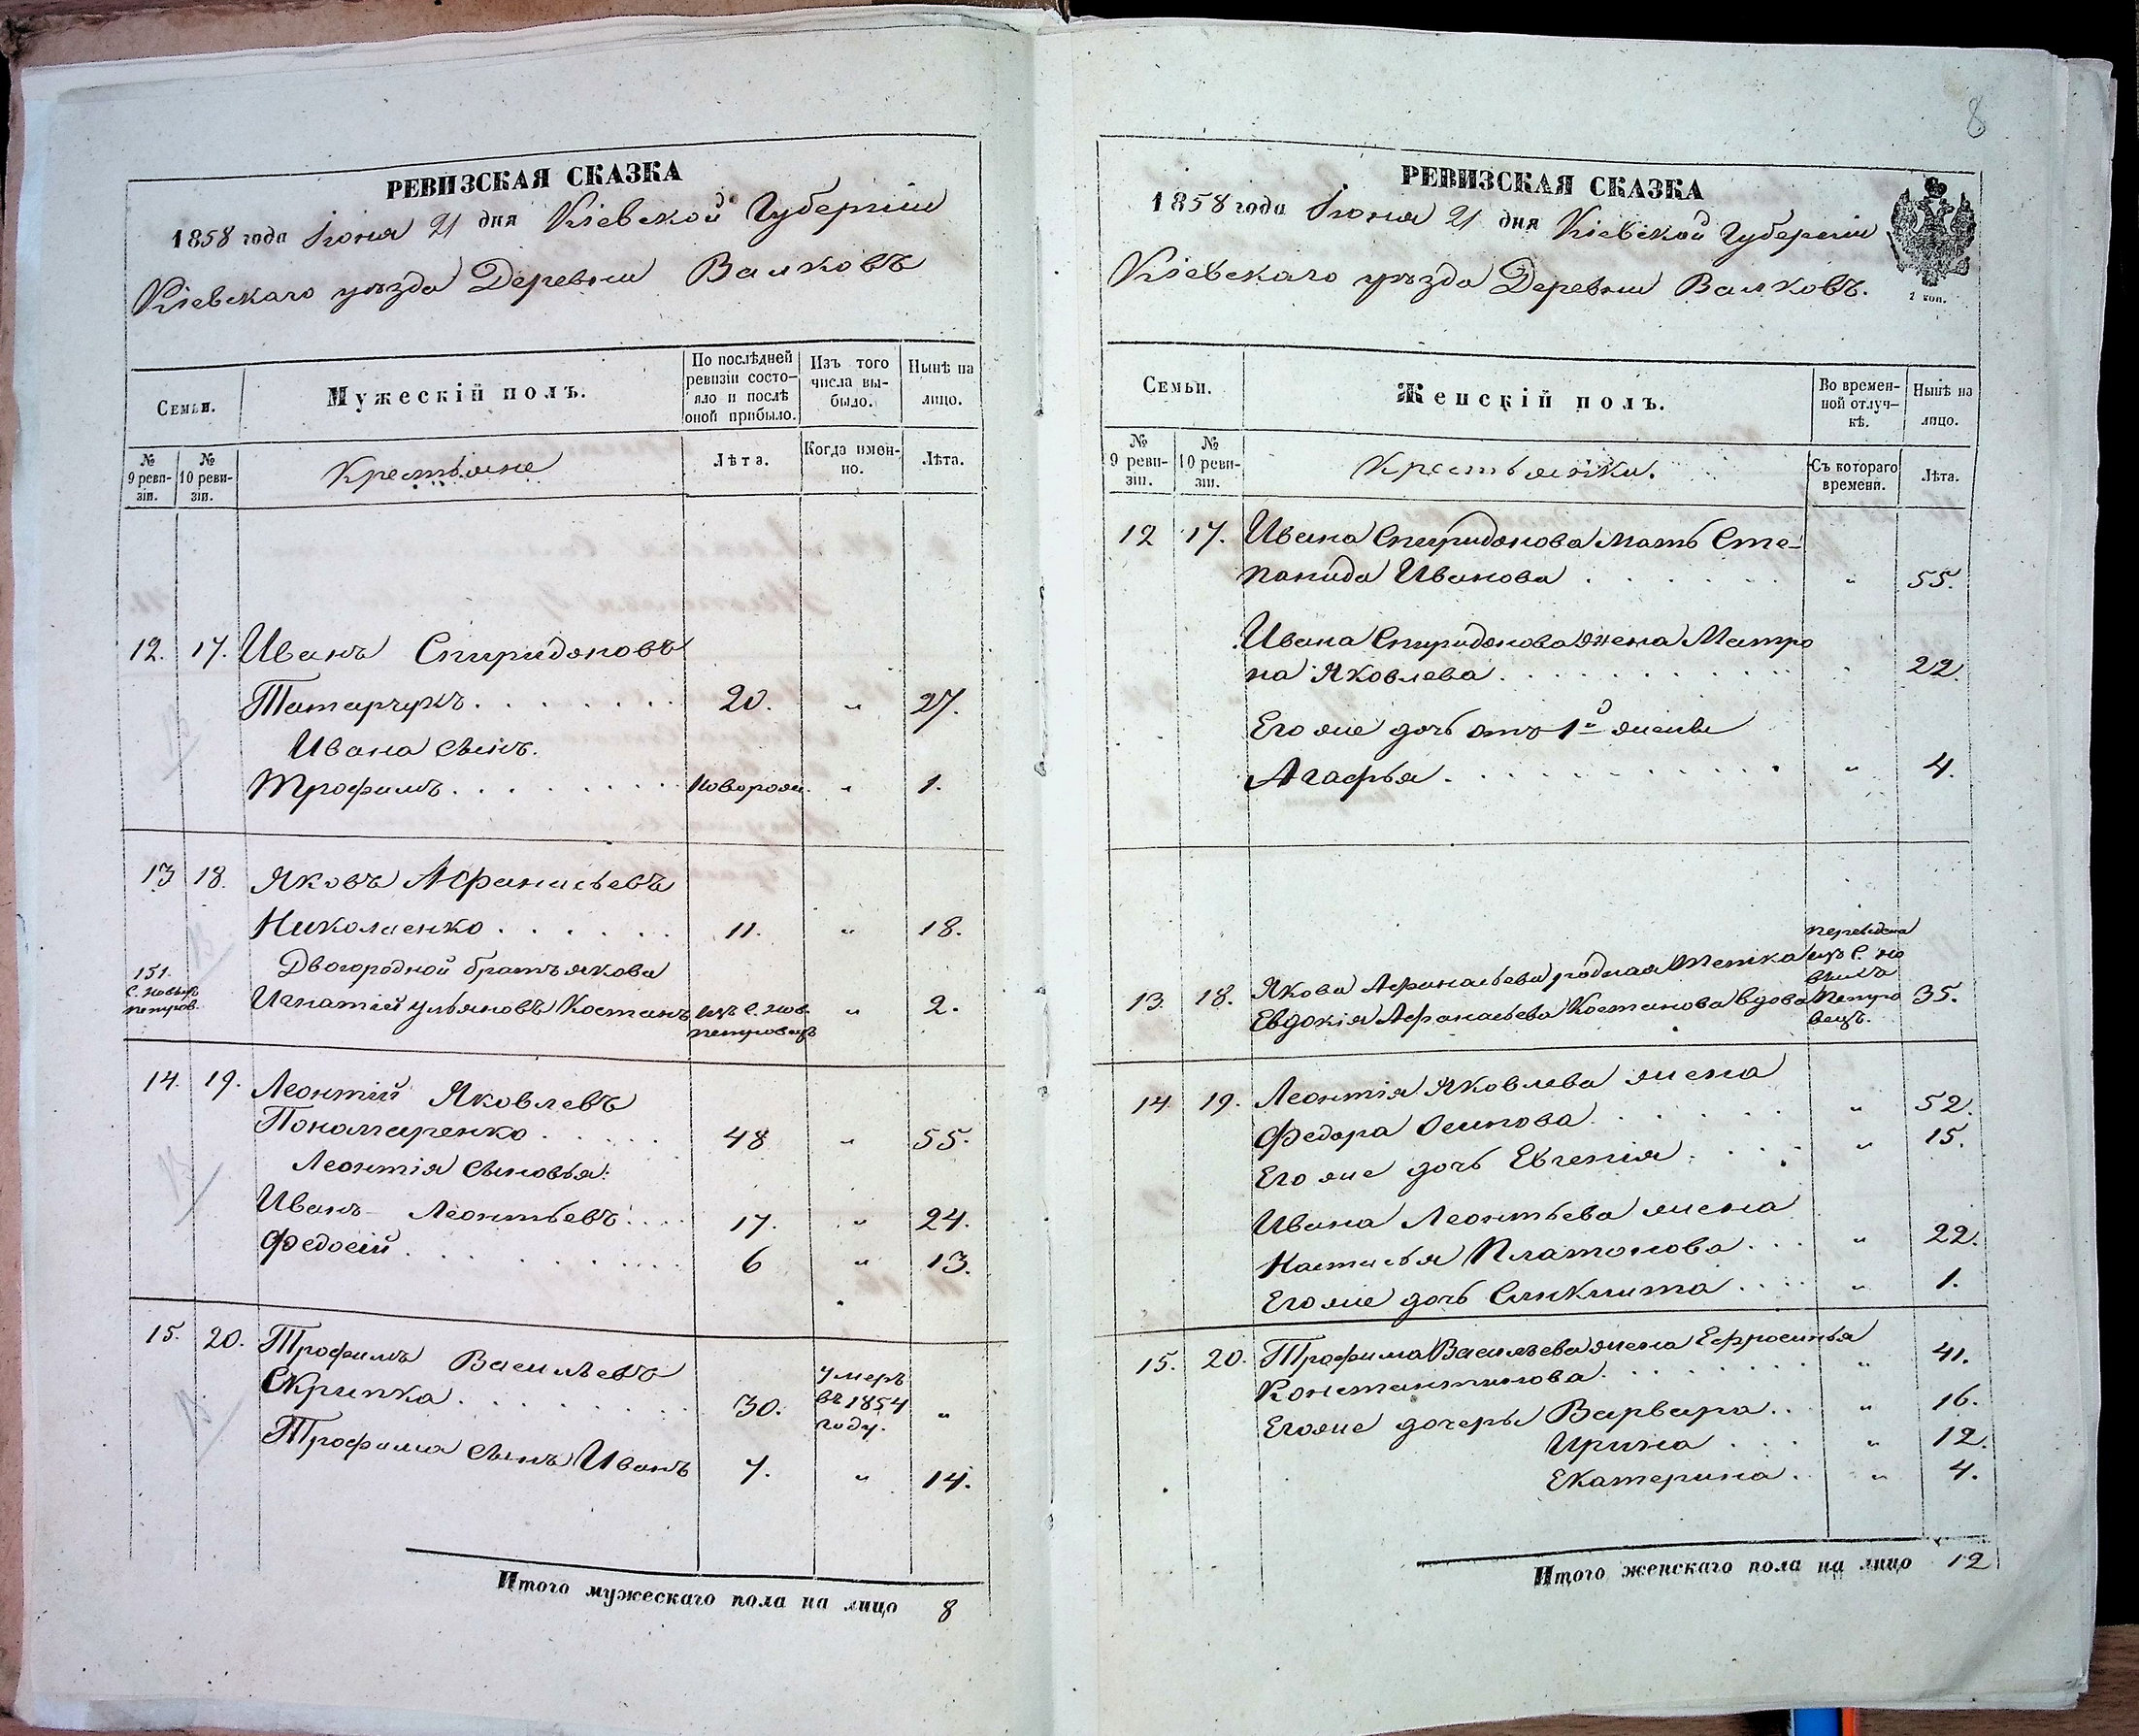 РЕВИЗСКАЯ СКАЗКА
1858 года Іюня 21 дня Кіевской Губерніи
Кіевскаго уѣзда Деревни Валковъ
Семьи.
Мужескій полъ.
По послѣдней ревизіи состояло и послѣ оной прибыло.
Изъ того числа выбыло.
Нынѣ на лицо.
№ 9 ревизіи.
№ 10 ревизіи.
Крестьяне
Лѣта.
Когда именно.
Лѣта.
12. 17. Иванъ Спиридоновъ
Татарчукъ . . . . . . . 20. " 27.
Ивана сынъ.
Трофимъ . . . . . . . . новорож. " 1.
13 18. Яковъ Афанасьевъ
Николаенко . . . . . . 11. " 18.
Двоюродной братъ Якова
151. С. Новых Петров. Игнатій Ульяновъ Костанъ изъ С. Нов. Петровецъ " 2.
14. 19. Леонтій Яковлевъ
Пономаренко . . . . . 48 " 55.
Леонтія сыновья:
Иванъ Леонтьевъ . . . . 17. " 24.
Федосій . . . . . . . . . 6 " 13.
15. 20. Трофимъ Васильевъ
Скрипка . . . . . . . . 30. умеръ въ 1854 году. "
Трофима сынъ Иванъ 7. " 14.
Итого мужескаго пола на лицо 8
8
РЕВИЗСКАЯ СКАЗКА
1858 года Іюня 21 дня Кіевской Губерніи
Кіевскаго уѣзда Деревни Валковъ.
2 коп.
Семьи.
Женскій полъ.
Во временной отлучкѣ.
Нынѣ на лицо.
№ 9 ревизіи.
№ 10 ревизіи.
Крестьянки.
Съ котораго времени.
Лѣта.
12 17. Ивана Спиридонова мать Сте-
панида Иванова . . . . . . " 55.
Ивана Спиридонова жена Матро
на Яковлева . . . . . . . . . 22.
Его же дочь отъ 1й жены
Агафья . . . . . . . . . . . " 4.
13. 18. Якова Афанасьева родная тетка
Евдокія Афанасьева Костанова вдова переведена изъ С. Но выхъ Петро вецъ. 35.
14 19. Леонтія Яковлева жена
Федора Осипова . . . . . . " 52.
Его же дочь Евгенія . . . . " 15.
Ивана Леонтьева жена
Настасья Платонова . . . " 22.
Его же дочь Синклита . . . . " 1.
15. 20. Трофима Васильева жена Ефросинья
Константинова . . . . . . . . " 41.
Его же дочеры Варвара . . " 16.
Ирина . . . " 12.
Екатерина . . " 4.
Итого женскаго пола на лицо 12